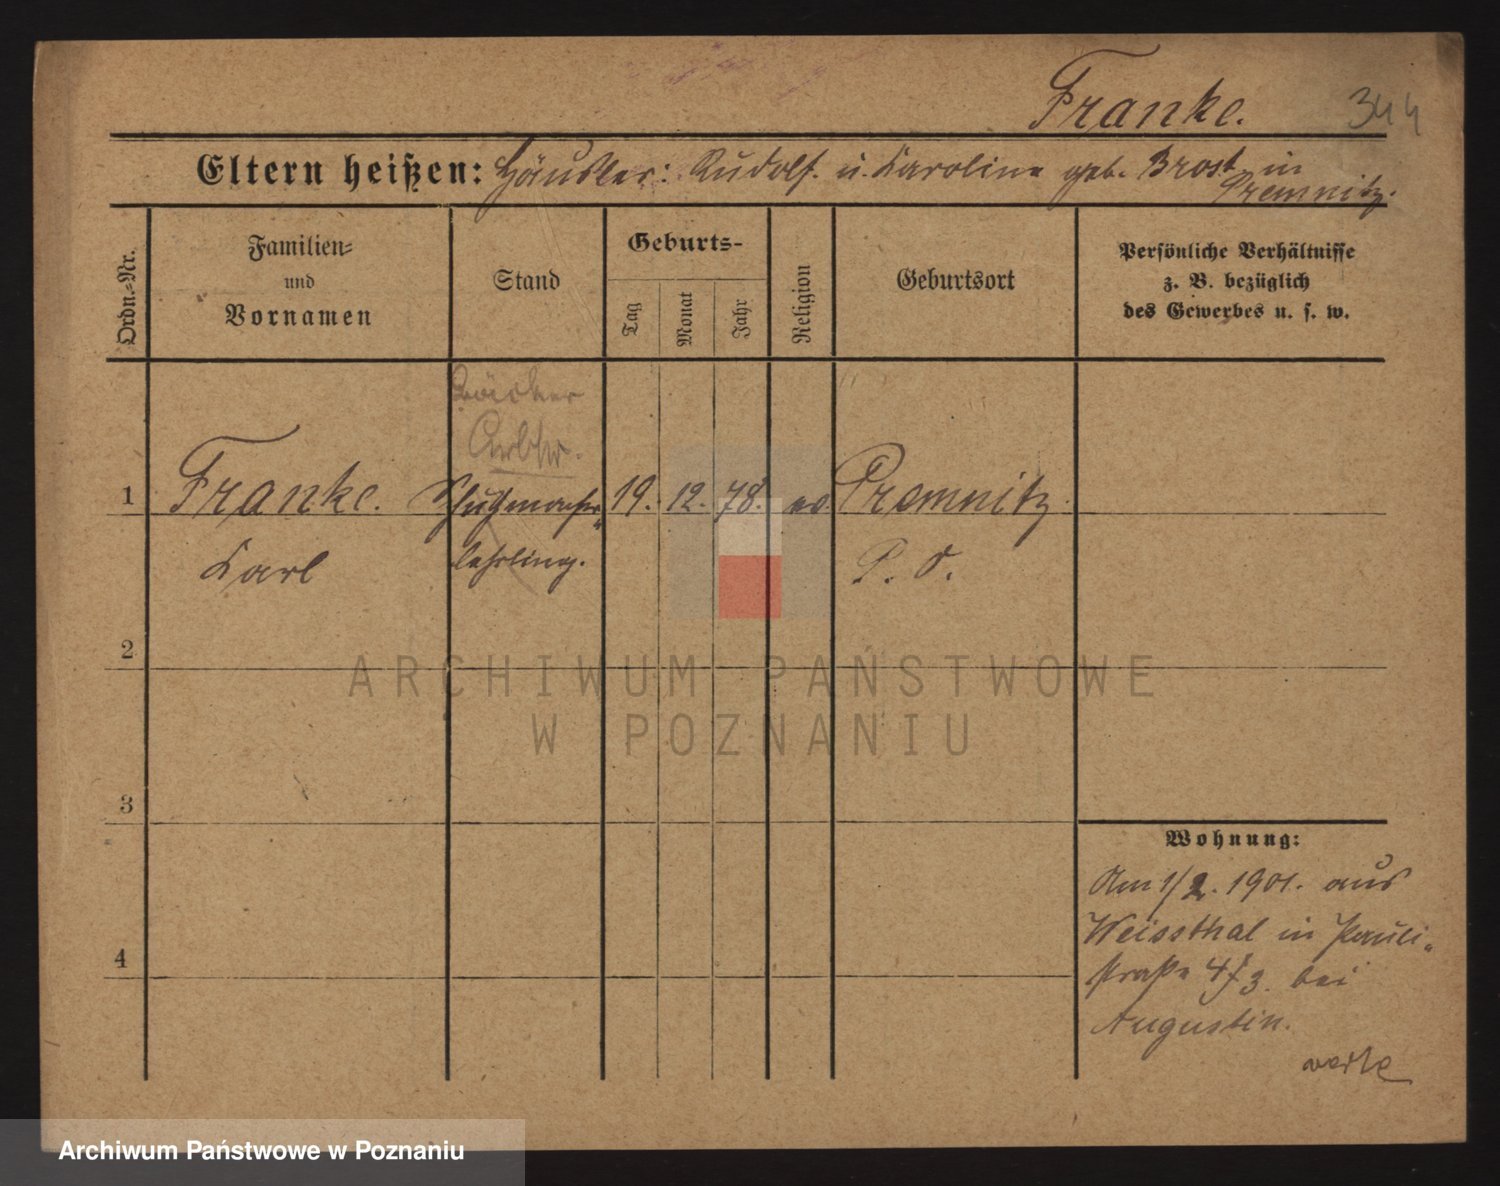 Franke.
344
Eltern heißen: Häusler: Rudolf. u. Karoline geb. Brost in
Premnitz.
Ordn.=Nr.
Familien=
und
Vornamen
Stand
Geburts-
Tag
Monat
Jahr
Religion
Geburtsort
Persönliche Verhältnisse
z. B. bezüglich
des Gewerbes u. s. w.
Bäcker
Arbtr.
1 Franke. Schuhmacher= 19. 12. 78. ev Premnitz.
Karl lehrling. P. O.
2
3
4
Wohnung:
Am 1/2. 1901. aus
Weissthal in Pauli=
straße 4 I 3. bei
Augustin.
ARCHIWUM PAŃSTWOWE
W POZNANIU
Archiwum Państwowe w Poznaniu